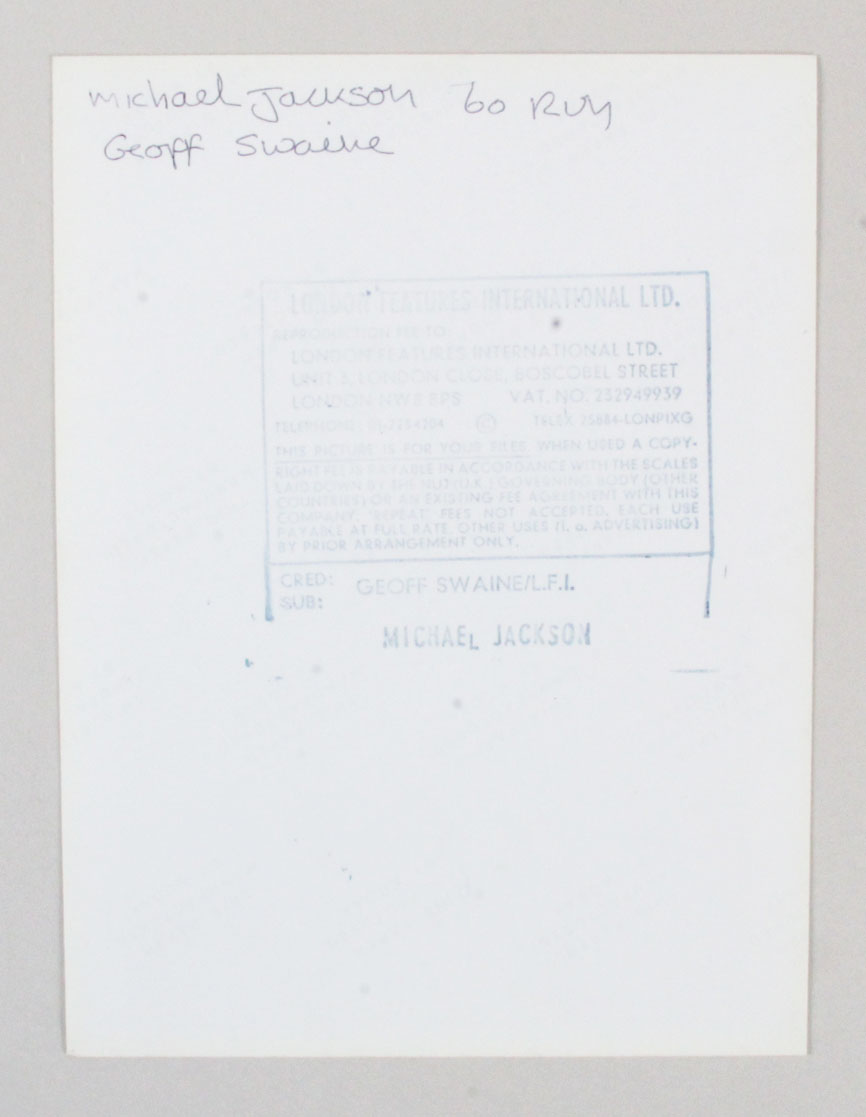 Michael Jackson 60 RUN
Geoff Swaine
LONDON FEATURES INTERNATIONAL LTD.
REPRODUCTION FEE TO:
LONDON FEATURES INTERNATIONAL LTD.
UNIT 3, LONDON CLOSE, BOSCOBEL STREET
LONDON NW8 8PS VAT. NO. 232949939
TELEPHONE: 01-723 4204 © TELEX 25684-LONPIXG
THIS PICTURE IS FOR YOUR FILES. WHEN USED A COPY-
RIGHT FEE IS PAYABLE IN ACCORDANCE WITH THE SCALES
LAID DOWN BY THE NUJ (U.K.) GOVERNING BODY (OTHER
COUNTRIES) OR AN EXISTING FEE AGREEMENT WITH THIS
COMPANY. 'REPEAT' FEES NOT ACCEPTED. EACH USE
PAYABLE AT FULL RATE. OTHER USES (I. e. ADVERTISING)
BY PRIOR ARRANGEMENT ONLY.
CRED: GEOFF SWAINE/L.F.I.
SUB:
MICHAEL JACKSON